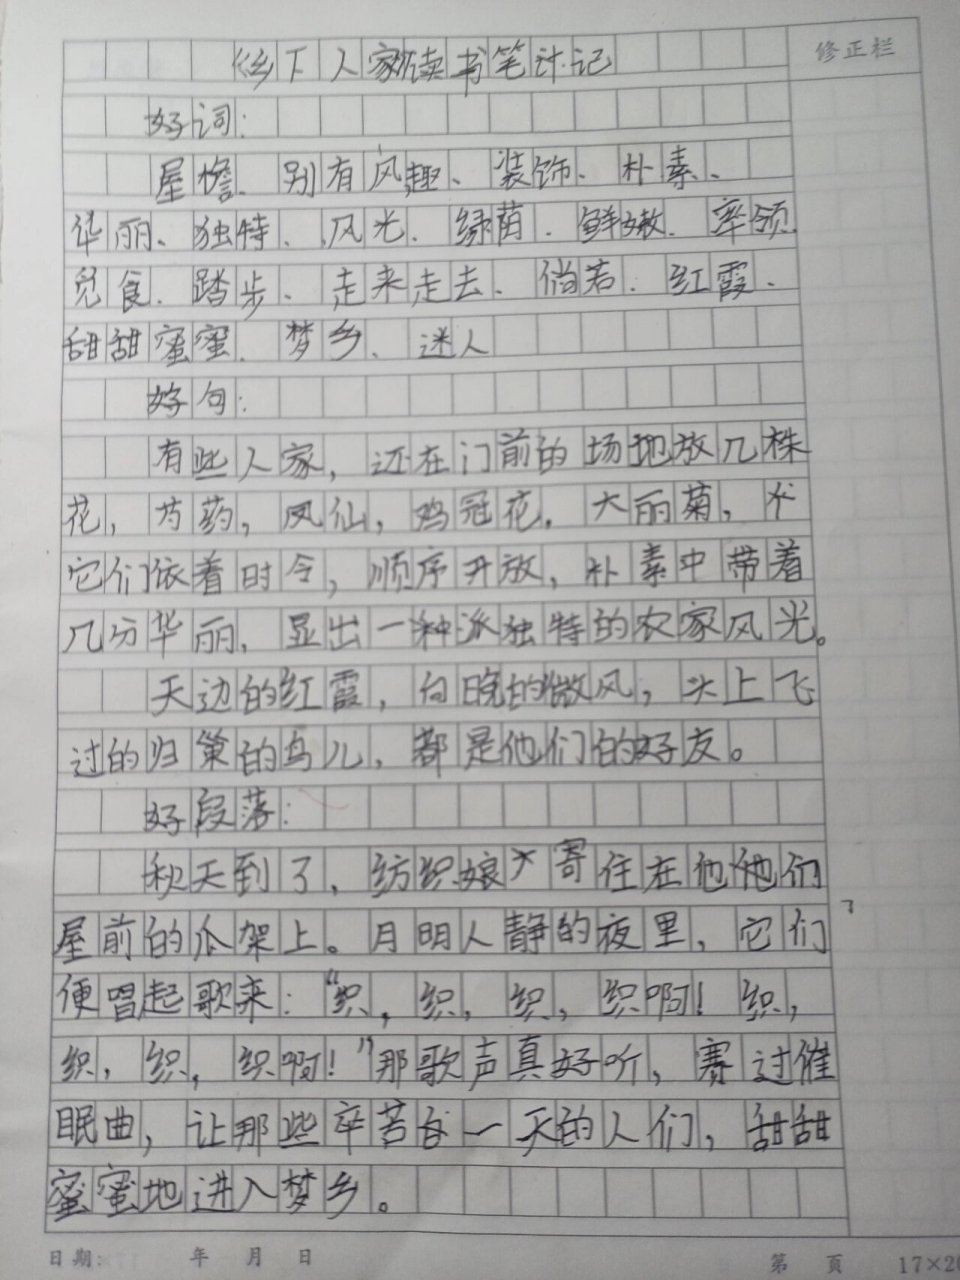 《乡下人家》读书笔记
修正栏
好词:
屋檐、别有风趣、装饰、朴素、
华丽、独特、风光、绿荫、鲜嫩、率领
觅食、踏步、走来走去、倘若、红霞、
甜甜蜜蜜、梦乡、迷人
好句:
有些人家,还在门前的场地放几株
花,芍药,凤仙,鸡冠花,大丽菊,
它们依着时令,顺序开放,朴素中带着
几分华丽,显出一种派独特的农家风光。
天边的红霞,向晚的微风,头上飞
过的归巢的鸟儿,都是他们的好友。
好段落:
秋天到了,纺织娘寄住在他们
屋前的瓜架上。月明人静的夜里,它们
便唱起歌来:“织,织,织,织啊!织,
织,织,织啊!”那歌声真好听,赛过催
眠曲,让那些辛苦一天的人们,甜甜
蜜蜜地进入梦乡。
日期: 年 月 日
第 页 17×20